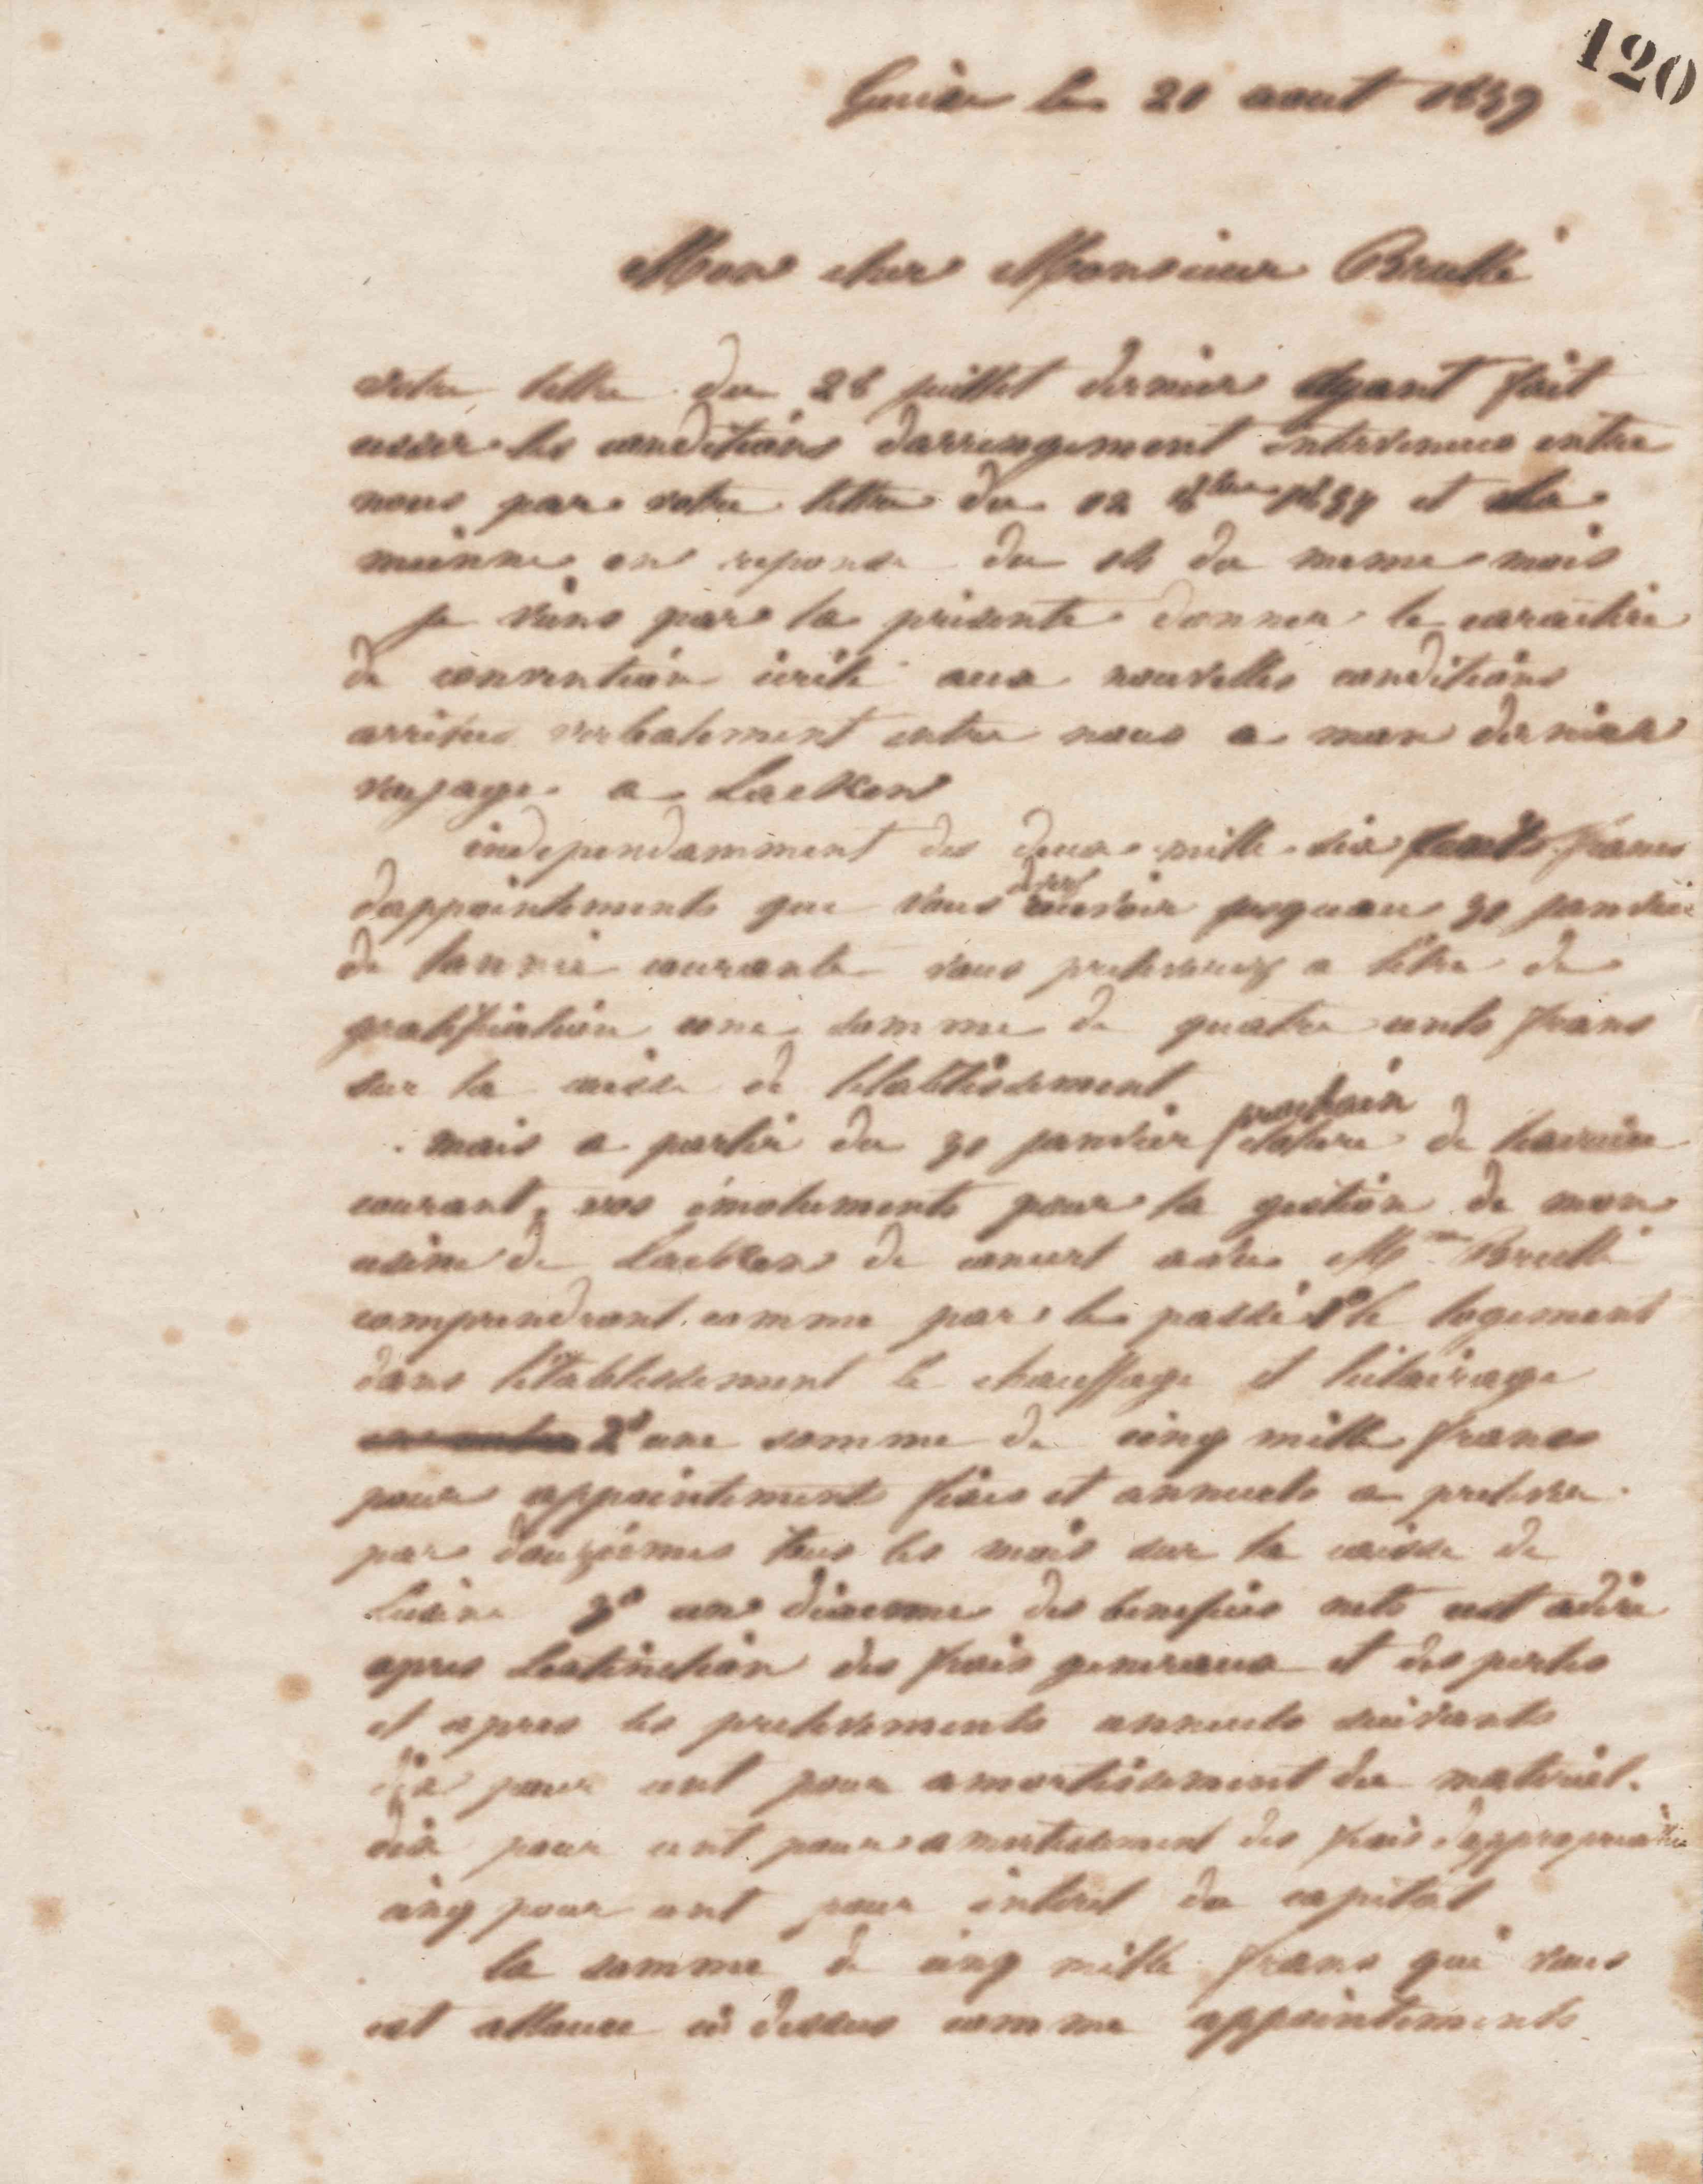 120
Guise le 21 aout 1859
Mon cher Monsieur Brullé
votre lettre du 28 juillet dernier ayant fait
cesser les conditions darrangement intervenues entre
nous par votre lettre du 12 et la
mienne en reponse du du meme mois
je viens par la présente donner le caractère
de convention écrite aux nouvelles conditions
arrêtées verbalement entre nous a mon dernier
voyage a Laeken
independamment des deux mille six cents francs
dappointements que vous devez recevoir jusquau 30 janvier
de lannée courante vous preleverez a titre de
gratification une somme de quatre cents francs
sur la caisse de letablissement
mais a partir du 30 janvier prochain cloture de lexercice
courant, vos émoluments pour la gestion de mon
usine de Laeken de concert avec Mme Brullé
comprendront comme par le passé 1º le logement
dans létablissement le chauffage et léclairage
2º une somme de cinq mille francs
pour appointements fixes et annuels a prelever
par douzièmes tous les mois sur la caisse de
lusine 3º un dixieme des benefices nets cest adire
apres lextinction des frais generaux et des pertes
et apres les prelevements annuels suivants
dix pour cent pour amortissement du materiel.
dix pour cent pour amortissement des frais dappropriation
cinq pour cent pour intéret du capital
la somme de cinq mille francs qui vous
est allouee ci dessus comme appointements